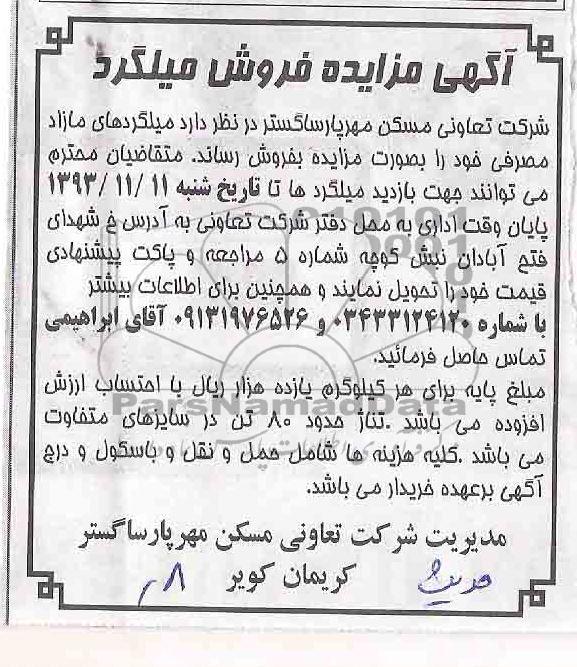 آگهی مزایده فروش میلگرد
شرکت تعاونی مسکن مهرپارساگستر در نظر دارد میلگردهای مازاد
مصرفی خود را بصورت مزایده بفروش رساند. متقاضیان محترم
می توانند جهت بازدید میلگرد ها تا تاریخ شنبه ۱۱ /۱۱ /۱۳۹۳
پایان وقت اداری به محل دفتر شرکت تعاونی به آدرس خ شهدای
فتح آبادان نبش کوچه شماره ۵ مراجعه و پاکت پیشنهادی
قیمت خود را تحویل نمایند و همچنین برای اطلاعات بیشتر
با شماره ۰۳۴۳۳۱۲۴۱۲۰ و ۰۹۱۳۱۹۷۶۵۲۶ آقای ابراهیمی
تماس حاصل فرمائید.
مبلغ پایه برای هر کیلوگرم یازده هزار ریال با احتساب ارزش
افزوده می باشد .تناژ حدود ۸۰ تن در سایزهای متفاوت
ParsNamadData
می باشد .کلیه هزینه ها شامل حمل و نقل و باسکول و درج
آگهی برعهده خریدار می باشد.
مدیریت شرکت تعاونی مسکن مهرپارساگستر
کریمان کویر